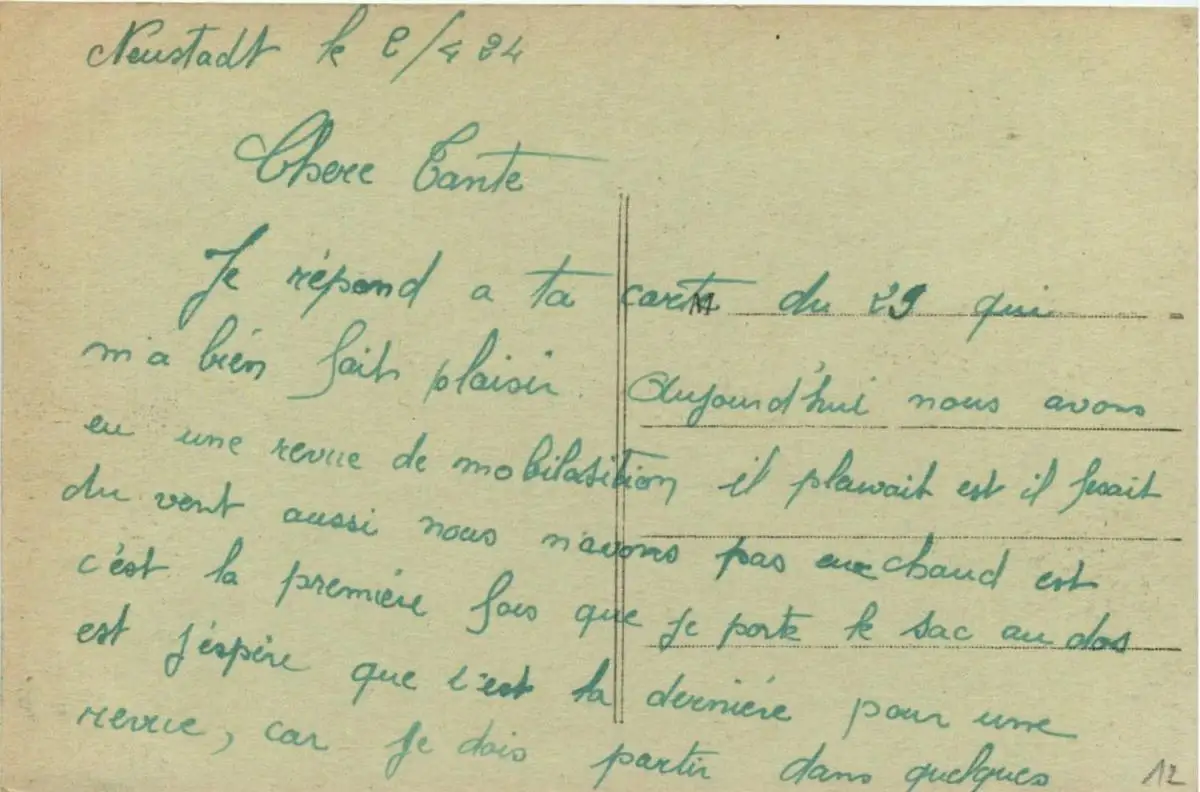 Neustadt le 2/4 24
Chere Tante
Je répond a ta carte du 29 qui
m'a bien fait plaisir. Aujourd'hui nous avons
eu une revue de mobilasition il pluvait est il fesait
du vent aussi nous n'avons pas eux chaud est
c'est la première fois que je porte le sac au dos
est j'éspère que c'est la dernière pour une
revue, car je dois partir dans quelques
12